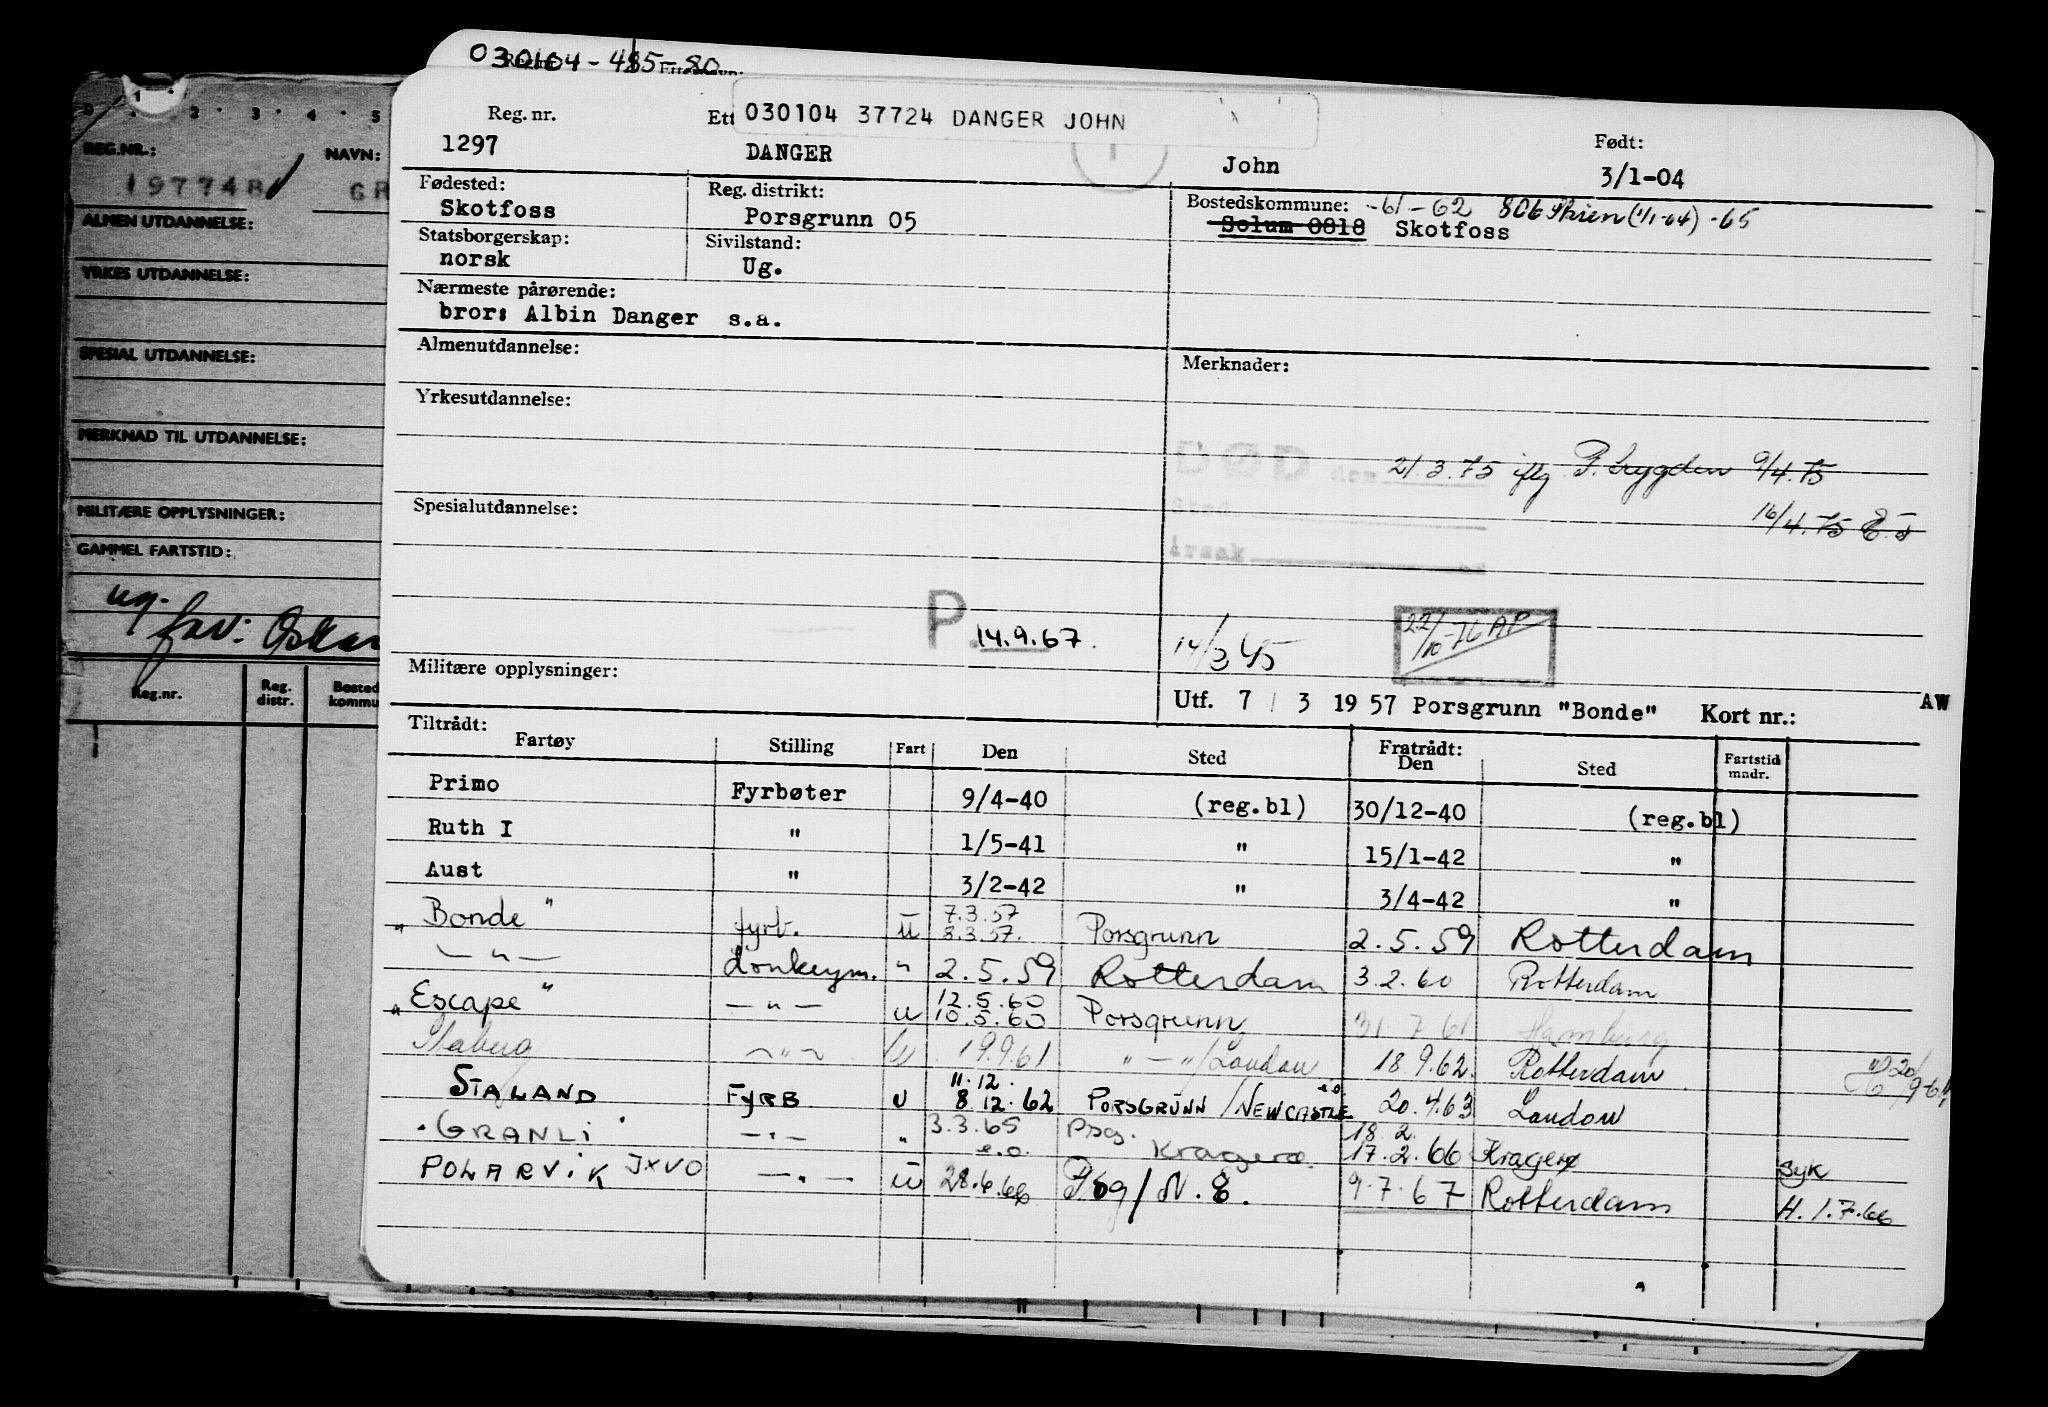 030104-
030104 37724 DANGER JOHN
Reg. nr. Ett Født:
1297 DANGER John 3/1-04
Fødested: Reg. distrikt: Bostedskommune: -61-62 806 Skien (1/1-64) -65
Skotfoss Porsgrunn 05 Solum 0818 Skotfoss
Statsborgerskap: Sivilstand:
norsk Ug.
Nærmeste pårørende:
bror: Albin Danger s.a.
Almenutdannelse: Merknader:
Yrkesutdannelse:
DØD den 21.3.75 iflg P.trygden 9/4.75
Spesialutdannelse: Sted 16/4.75
årsak
P. 14.9.67. 14/3 65 22/10-76 AP
Militære opplysninger:
Utf. 7 / 3 1957 Porsgrunn "Bonde" Kort nr.: AW
Tiltrådt: Fratrådt:
Fartøy Stilling Fart Den Sted Den Sted Fartstid mndr.
Primo Fyrbøter 9/4-40 (reg.bl) 30/12-40 (reg.bl)
Ruth I " 1/5-41 " 15/1-42 "
Aust " 3/2-42 " 3/4-42 "
"Bonde" fyrb. u 7.3.57 8.3.57. Porsgrunn 2.5.59 Rotterdam
— " — donkeym. " 2.5.59 Rotterdam 3.2.60 Rotterdam
"Escape" — " — u 12.5.60 10.5.60 Porsgrunn 31.7.61 Hamburg
Staberg — " — u 19.9.61 " — " /London 18.9.62. Rotterdam
STALAND FYRB U 11.12. 8.12.62 PORSGRUNN/NEWCASTLE e.o 20.4.63 London
"GRANLI" — " — " 3.3.65 e.o. Psg. Kragerø. 18.2. 17.2.66 Kragerø Syk
POLARVIK JXVO — " — u 28.6.66 Psg/N.E. 9.7.67 Rotterdam H. 1.7.66
REG.NR.: NAVN:
197748 GR
ALMEN UTDANNELSE:
YRKES UTDANNELSE:
SPESIAL UTDANNELSE:
MERKNAD TIL UTDANNELSE:
MILITÆRE OPPLYSNINGER:
GAMMEL FARTSTID:
ug.
far: Oskar
Reg.nr. Reg. distr. Bosted kommu